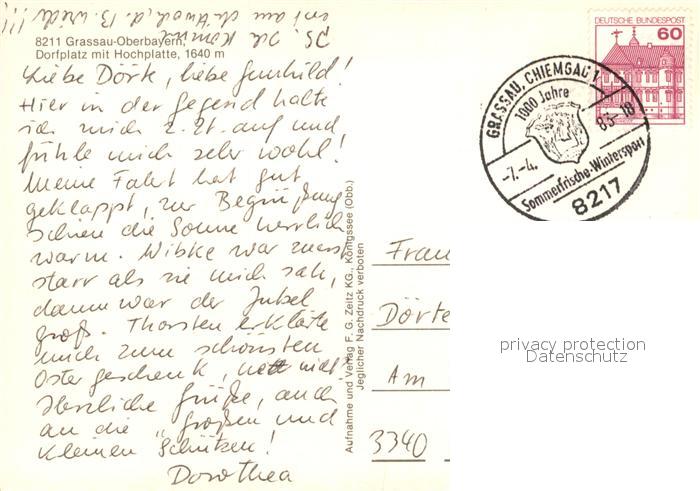 8211 Grassau-Oberbayern,
Dorfplatz mit Hochplatte, 1640 m
Liebe Dörte, liebe Gunhild!
Hier in der Gegend halte
ich mich z. Zt. auf und
fühle mich sehr wohl!
Meine Fahrt hat gut
geklappt, zur Begrüßung
schien die Sonne herrlich
warm. Wibke war zuerst
starr als sie mich sah,
dann war der Jubel
groß. Thorsten erklärte
mich zum schönsten
Ostergeschenk, nett nicht?
Herzliche Grüße, auch
an die "großen und
kleinen Schützen!
Dorothea
PS. Ich komme
erst am d. B. wieder!!!
Aufnahme und Verlag F. G. Zeitz KG., Königssee (Obb.)
Jeglicher Nachdruck verboten
DEUTSCHE BUNDESPOST
60
GRASSAU, CHIEMGAU 1
1000 Jahre
-7.-4. 83-18
Sommerfrische-Wintersport
8217
Frau
Dörte
Am
3340
privacy protection
Datenschutz